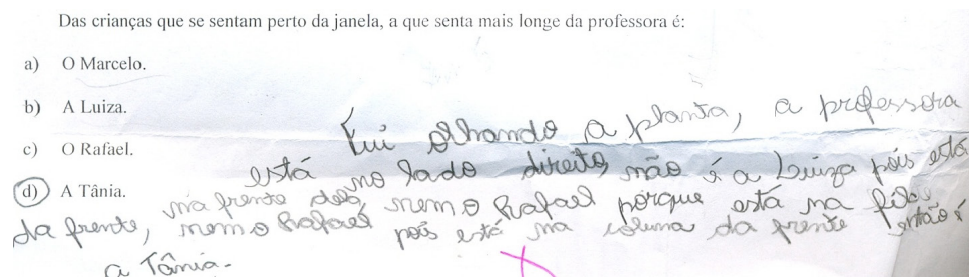 Das crianças que se sentam perto da janela, a que senta mais longe da professora é:
a) O Marcelo.
b) A Luiza.
c) O Rafael.
d) A Tânia.
Fui olhando a planta, a professora
está no lado direito, não é a Luiza pois está
na frente dela, nem o Rafael porque está na fila
da frente, nem o Rafael pois está na coluna da frente então é
a Tânia.